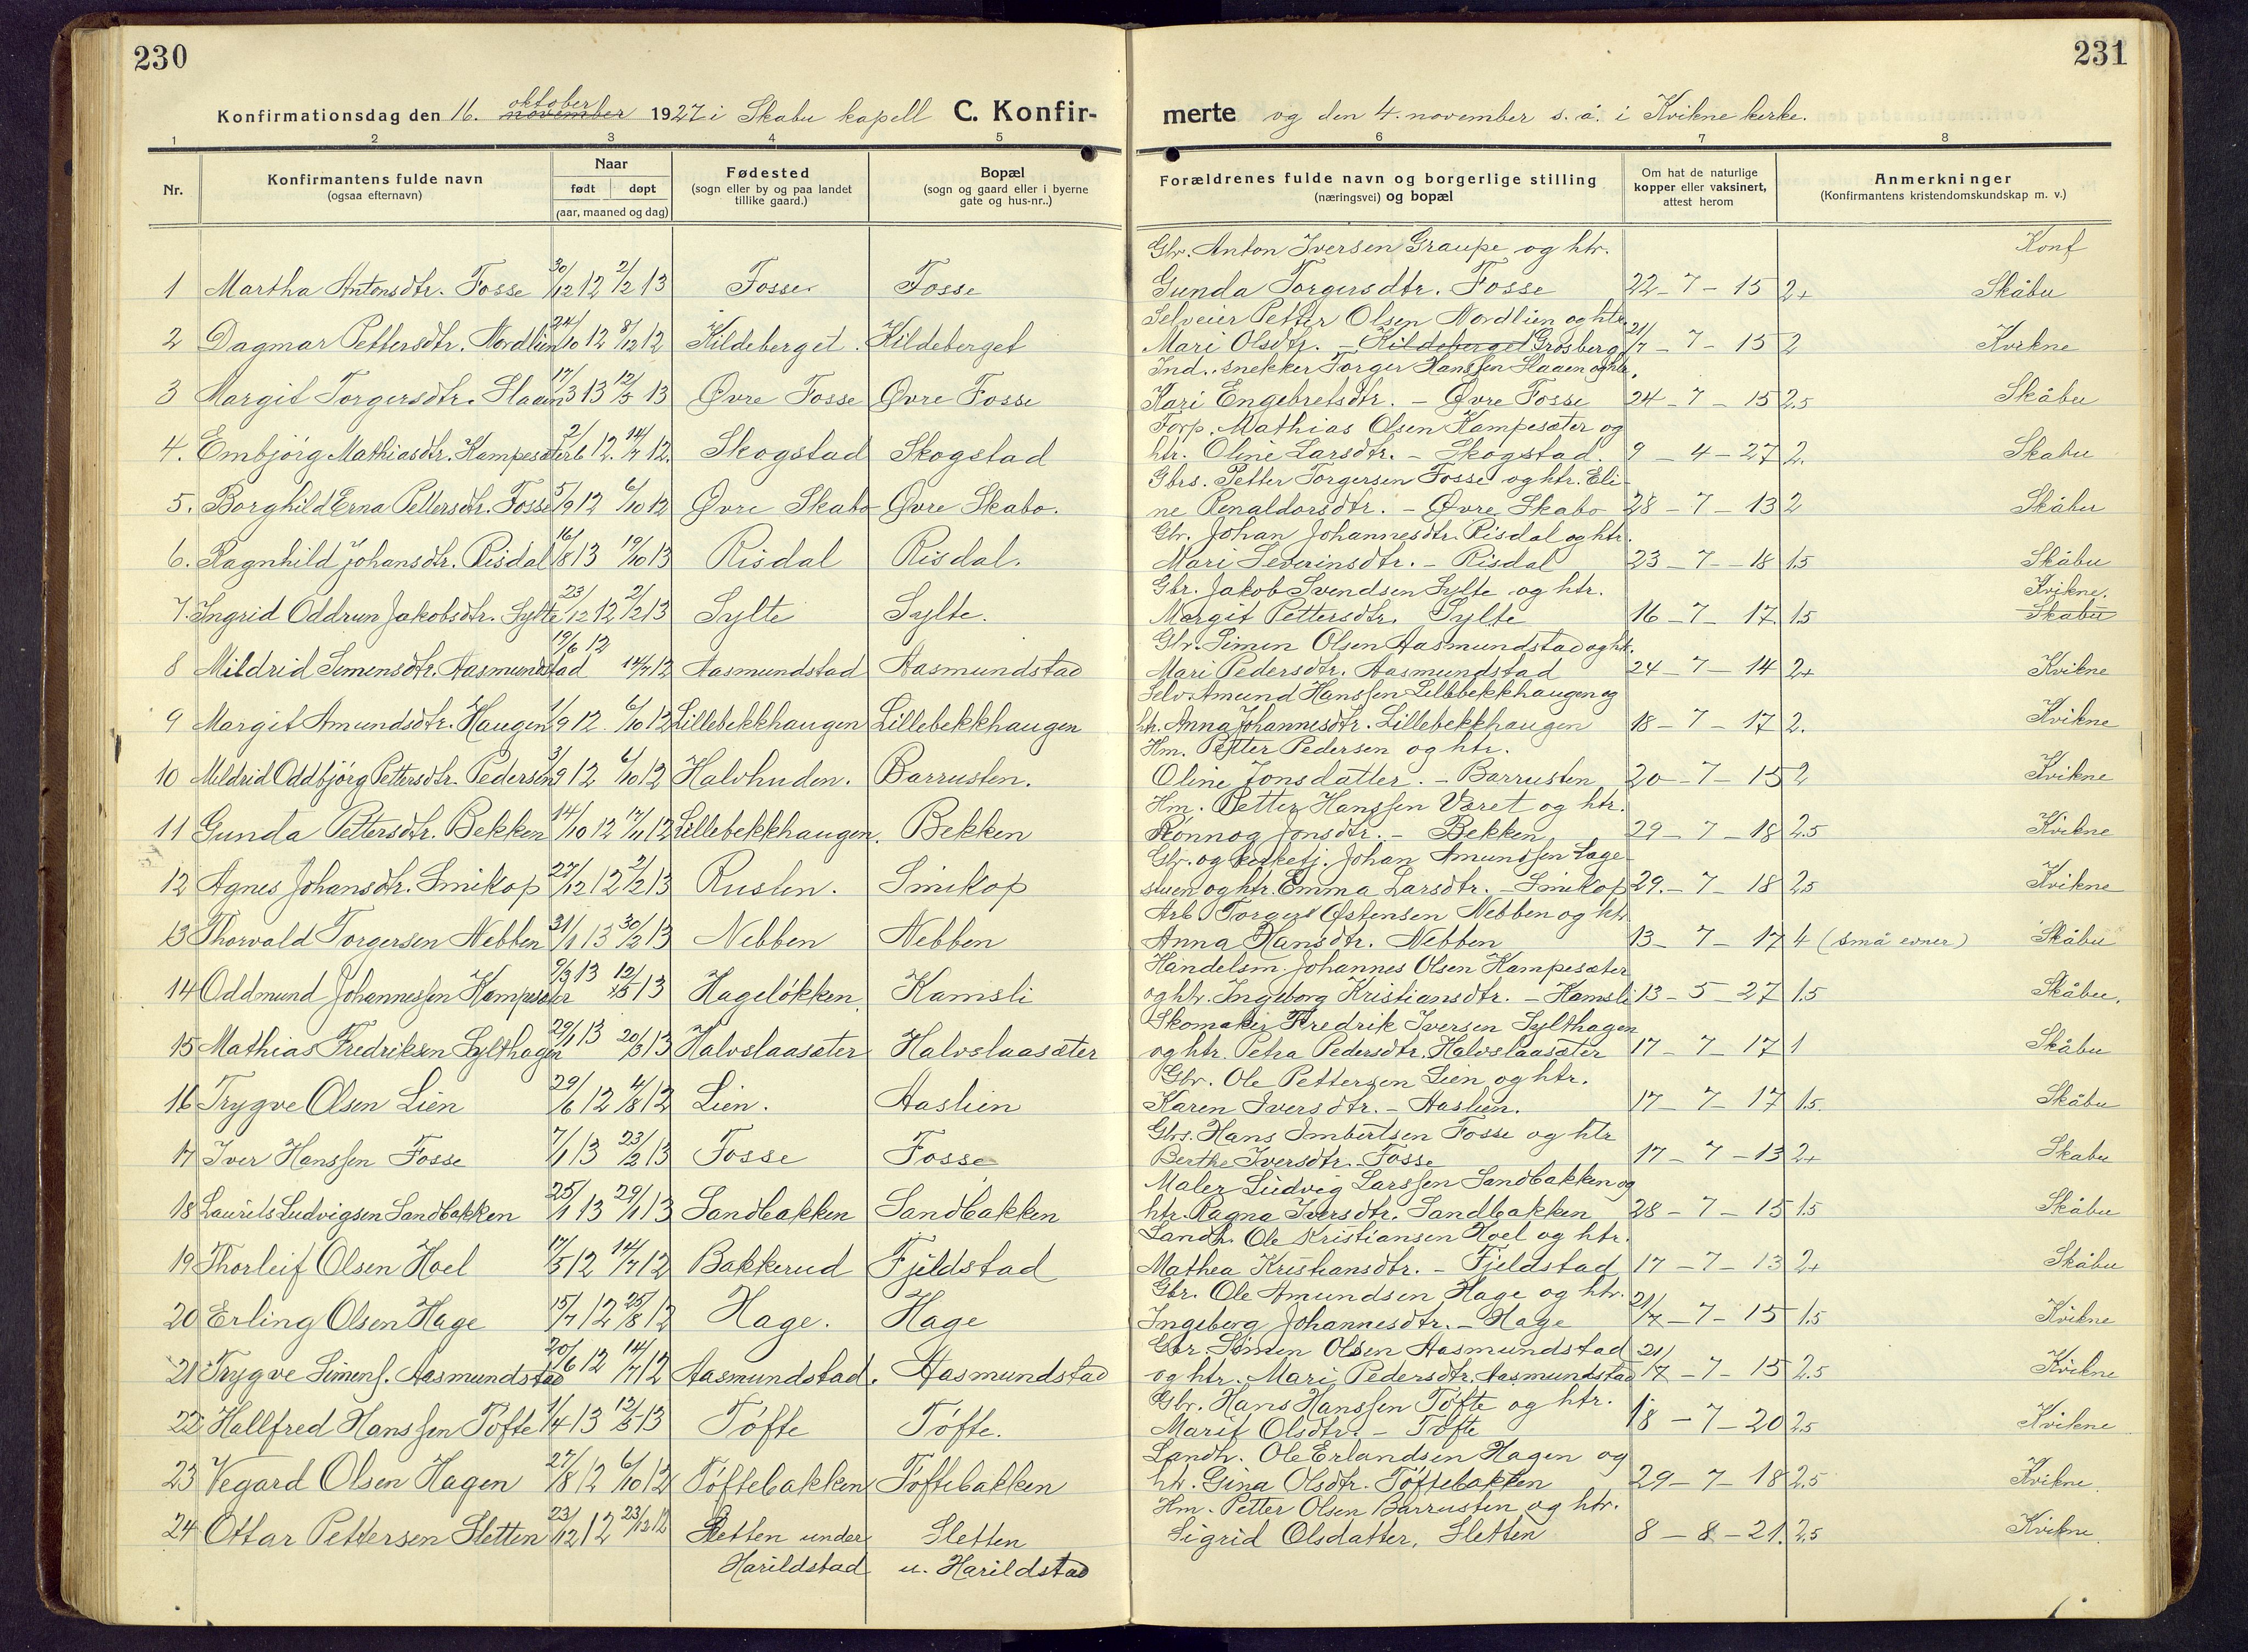 230
231
Konfirmationsdag den 16. oktober november 1927 i Skabu kapell C. Konfir-
merte og den 4. november s. å. i Kvikne kerke.
1 2 3 4 5
6 7 8
Nr.
Konfirmantens fulde navn
(ogsaa efternavn)
Naar
født døpt
(aar, maaned og dag)
Fødested
(sogn eller by og paa landet
tillike gaard.)
Bopæl
(sogn og gaard eller i byerne
gate og hus-nr..)
Forældrenes fulde navn og borgerlige stilling
(næringsvei) og bopæl
Om hat de naturlige
kopper eller vaksinert,
attest herom
Anmerkninger
(Konfirmantens kristendomskundskap m. v.)
Gbr. Anton Iversen Graupe og htr. Konf
1 Martha Antonsdtr. Fosse 30/12 12 2/2 13 Fosse Fosse Gunda Torgersdtr. Fosse 22 - 7 - 15 2+ Skåbu
Selveier Petter Olsen Nordlien og htr.
2 Dagmar Pettersdtr. Nordlien 24/10 12 8/12 12 Kildeberget. Kildeberget Mari Olsdtr. - Kildeberget Grosberg 21/7 - 7 - 15 2 Kvikne
Ind., snekker Torger Hanssen Slaaen og htr.
3 Margit Torgersdtr. Slaaen 17/3 13 12/5 13 Øvre Fosse Øvre Fosse Kari Engebretsdtr. - Øvre Fosse 24 - 7 - 15 2,5 Skåbu
Forp. Mathias Olsen Kampesæter og
4. Embjörg Mathiasdtr. Kampesæter 2/6 12. 14/7 12. Skogstad Skogstad htr. Oline Larsdtr. - Skogstad. 9 - 4 - 27 2. Skabu
Gbrs. Petter Torgersen Fosse og htr. Eli-
5. Borghild Erna Pettersdtr. Fosse 5/9 12 6/10 12 Øvre Skabo Øvre Skabo. ne Renaldorsdtr. - Øvre Skabo 28 - 7 - 13 2 Skåbu
Gbr. Johan Johannesdtr. Risdal og htr.
6. Ragnhild Johansdtr. Risdal 16/8 13 19/10 13 Risdal Risdal. Mari Severinsdtr. - Risdal 23 - 7 - 18 1,5 Skåbu
Gbr. Jakob Svendsen Sylte og htr. Kvikne.
7. Ingrid Oddrun Jakobsdtr. Sylte 23/12 12 2/2 13 Sylte Sylte. Margit Pettersdtr. Sylte 16 - 7 - 17 1,5 Skabu
Gbr. Simen Olsen Aasmundstad og htr.
8 Mildrid Simensdtr. Aasmundstad 19/6 12 14/7 12 Aasmundstad Aasmundstad Mari Pedersdtr. Aasmundstad 24 - 7 - 14 2+ Kvikne
Selv. Amund Hanssen Lillebekkhaugen og
9 Margit Amundsdtr. Haugen 1/9 12. 6/10 12 Lillebekkhaugen Lillebekkhaugen htr. Anna Johannesdtr. Lillebekkhaugen 18 - 7 - 17 2. Kvikne
Hm. Petter Pedersen og htr.
10 Mildrid Oddbjörg Pettersdtr. Pedersen 3/9 12 6/10 12 Halvhuden. Barrusten. Oline Jonsdatter. - Barrusten 20 - 7 - 15 2 Kvikne
Hm. Petter Hanssen Varet og htr.
11 Gunda Pettersdtr. Bekken 14/10 12 17/11 12 Lillebekkhaugen. Bekken Rönnog Jonsdtr. - Bekken. 29 - 7 - 18 2,5 Kvikne
Gbr. og kirketj. Johan Amundsen Lage-
12 Agnes Johansdtr. Smikop 27/12 12 2/2 13 Rusten. Smikop stuen og htr. Emma Larsdtr. - Smikop 29. - 7 - 18 2,5 Kvikne
Arb. Torger Østensen Nebben og htr
13 Thorvald Torgersen Nebben 31/1 13 30/2 13 Nebben Nebben Anna Hansdtr. Nebben 13 - 7 - 17 4 (små evner) Skåbu
Handelsm. Johannes Olsen Kampesæter
14 Oddmund Johannessen Kampesæter 9/3 13 12/5 13 Hagelökken Kamsli og htr. Ingeborg Kristiansdtr. - Kamsli 13 - 5 - 27 1,5 Skåbu.
Skomaker Fredrik Iversen Sylthagen
15 Mathias Fredriksen Sylthagen 29/1 13 20/3 13 Halvslaasæter Halvslaasæter og htr. Petra Pedersdtr. Halvslaasæter 17 - 7 - 17 1 Skåbu
Gbr. Ole Pettersen Lien og htr.
16 Trygve Olsen Lien 29/6 12 4/8 12 Lien. Aaslien Karen Iversdtr. - Aaslien. 17 - 7 - 17 1,5. Skåbu
Gbrs. Hans Imbertsen Fosse og htr
17 Iver Hanssen Fosse 7/1 13 23/2 13 Fosse Fosse Berthe Iversdtr. Fosse 17 - 7 - 13 2+ Skabu
Maler Ludvig Larssen Sandbakken og
18 Laurits Ludvigsen Sandbakken 25/1 13 29/1 13 Sandbakken Sandbakken htr. Ragna Iversdtr. Sandbakken 28 - 7 - 15 1,5 Skåbu
Landh. Ole Kristiansen Hoel og htr.
19 Thorleif Olsen Hoel 17/5 12 14/7 12 Bakkerud Fjeldstad Mathea Kristiansdtr. - Fjeldstad 17 - 7 - 13 2+ Skåbu
Gbr. Ole Amundsen Hage og htr.
20 Erling Olsen Hage 15/7 12 25/8 12 Hage. Hage Ingeborg Johannesdtr. - Hage 21/7 - 7 - 15 1,5 Kvikne
Gbr. Simen Olsen Aasmundstad
21 Trygve Simens. Aasmundstad 20/6 12 14/7 12 Aasmundstad. Aasmundstad og htr. Mari Pedersdtr. Aasmundstad 21/7 - 7 - 15 2,5 Kvikne
Gbr. Hans Hanssen Töfte og htr.
22 Hallfred Hanssen Töfte 1/4 13 12/5 13 Töfte Töfte. Marit Olsdtr. - Töfte 18 - 7 - 20 2,5 Kvikne
Landh. Ole Erlandsen Hagen og
23 Vegard Olsen Hagen 27/8 12 6/10 12 Töftebakken Töftebakken htr. Gina Olsdtr. Töftebakken 29 - 7 - 18 2,5 Kvikne
Hm. Petter Olsen Barrusten og htr.
24 Ottar Pettersen Sletten 23/12 12 23/12 12 Sletten under Sletten Sigrid Olsdatter, Sletten 8 - 8 - 21. 2,5 Kvikne.
Harildstad u. Harildstad